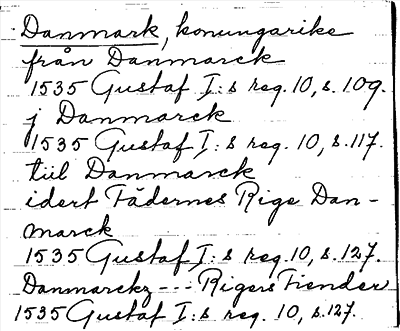 Danmark, konungarike
från Danmarck
1535 Gustaf I:s reg. 10, s. 109.
j Danmarck
1535 Gustaf I:s reg. 10, s. 117.
tiil Danmarck
idert Fädernes Rige Dan-
marck
1535 Gustaf I:s reg. 10, s. 127.
Danmarckz --- Rigers Fiender
1535 Gustaf I:s reg. 10, s. 127.